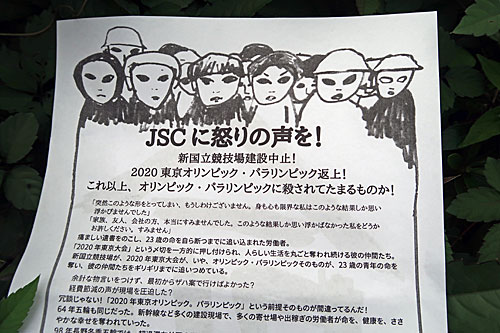 JSCに怒りの声を！
新国立競技場建設中止！
2020 東京オリンピック・パラリンピック返上！
これ以上、オリンピック・パラリンピックに殺されてたまるものか！
「突然このような形をとってしまい、もうしわけございません。身も心も限界な私はこのような結果しか思い
浮かびませんでした」
「家族、友人、会社の方、本当にすみませんでした。このような結果しか思い浮かばなかった私をどうか
お許しください。すみません」
痛ましい遺書をのこし、23 歳の命を自ら断つまでに追い込まれた労働者。
「2020 年東京大会」という〆切を一方的に押し付けられ、人らしい生活を丸ごと奪われ続ける彼の仲間たち。
新国立競技場が、2020 年東京大会が、いや、オリンピック・パラリンピックそのものが、23 歳の青年の命を
奪い、彼の仲間たちをギリギリまでに追いつめている。
余計な物言いをつけず、最初からザハ案で行けばよかった？
経費節減の声が現場を圧迫した？
冗談じゃない！「2020 年東京オリンピック。パラリンピック」という前提そのものが間違ってるんだ！
64 年五輪も同じだった。新幹線など多くの建設現場で、多くの寄せ場や出稼ぎの労働者が命を、健康を、ささ
やかな幸せを奪われていった。